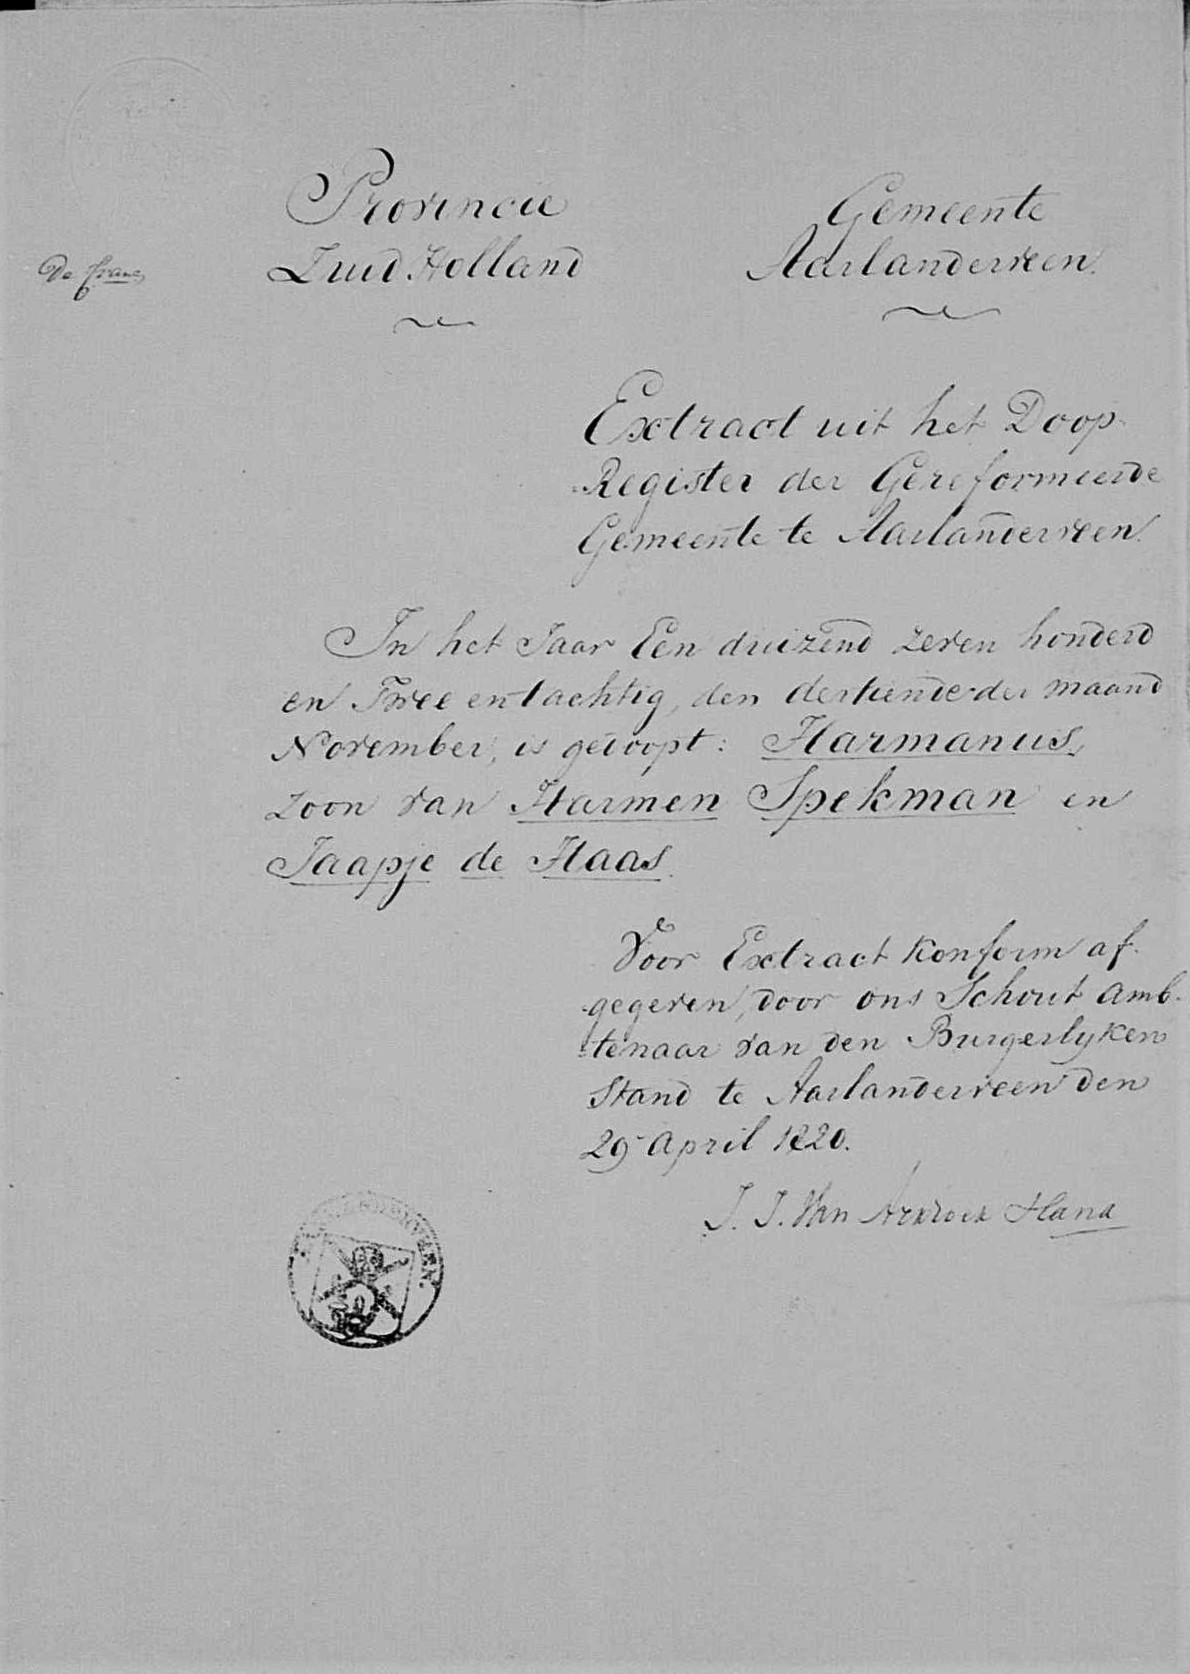 Provincie
Zuid Holland
Gemeente
Aarlanderveen.
De franc
Extract uit het Doop-
Register der Gereformeerde
Gemeente te Aarlanderveen.
In het Jaar Een duizend zeven honderd
en Twee en tachtig, den dertiende der maand
November, is gedoopt: Harmanus,
zoon van Harmen Spekman en
Jaapje de Haas.
Voor Extract konform af-
gegeven, door ons Schout Amb-
tenaar van den Burgerlyken
Stand te Aarlanderveen den
29 april 1820.
J. J. Van